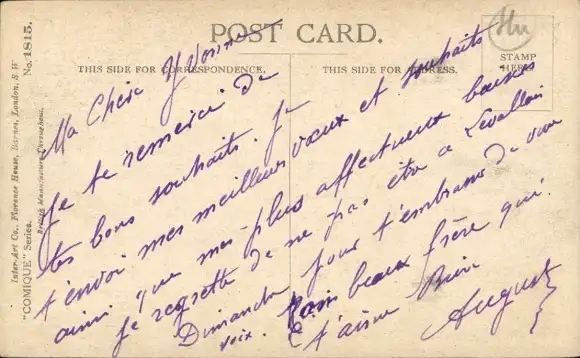 POST CARD.
THIS SIDE FOR CORRESPONDENCE.
THIS SIDE FOR ADDRESS.
STAMP
HERE.
Inter-Art Co., Florence House, Barnes, London, S.W
"COMIQUE" Series. No. 1815.
British Manufacture Throughout.
Ma Chère Yvonne
Je te remercie de
tes bons souhaits. Je
t'envoi mes meilleurs vœux et souhaits
ainsi que mes plus affectueux baisers
je regrette de ne pas être a Levallois
Dimanche pour t'embrasse de vive
voix. beaux frère qui
t'aime Bien
August